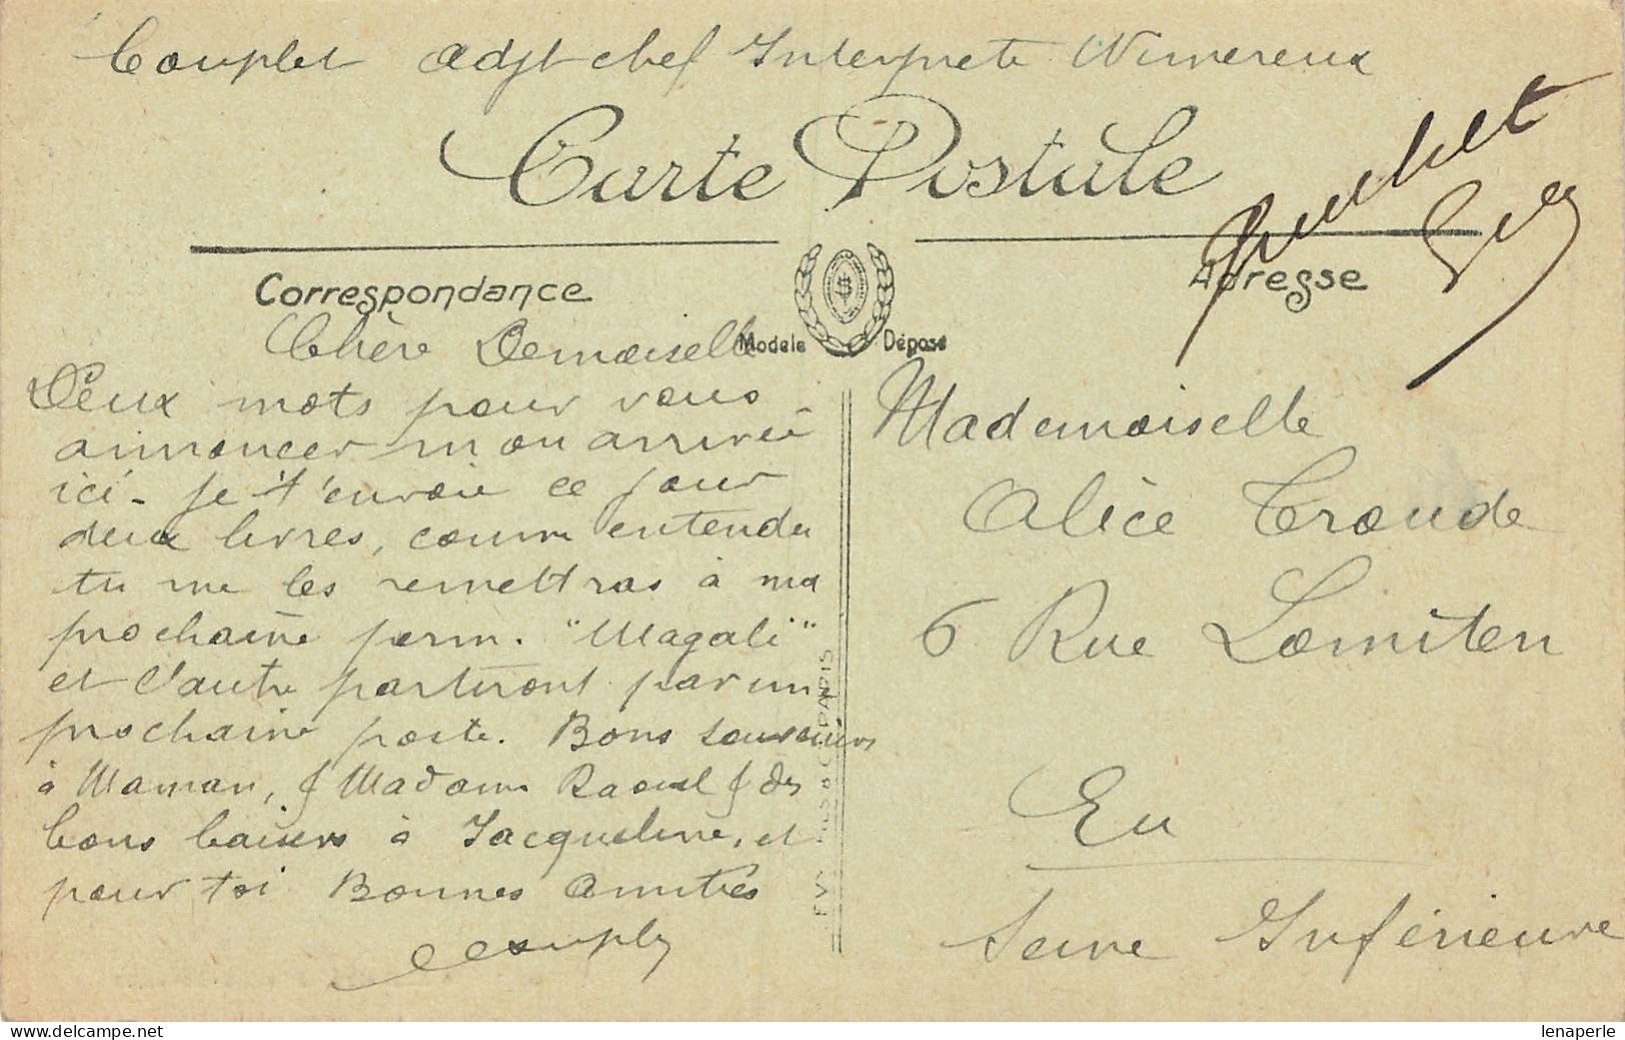 Couplet adjt chef Interprete Wimereux
Carte Postale
Correspondance
Adresse
Modele Déposé
Chère Demoiselle
Deux mots pour vous
annoncer mon arrivée
ici - je t'envoie ce jour
deux livres, comme entendu
tu me les remettras à ma
prochaine perm. "Magali"
et l'autre partiront par un
prochaine poste. Bons souvenirs
à Maman, & Madame Raoul & des
bons baisers à Jacqueline, et
pour toi Bonnes Amitiés
Couplet
Mademoiselle
Alice Troude
6 Rue Lomiten
Eu
Seine Inférieure
PARIS
lenaperle